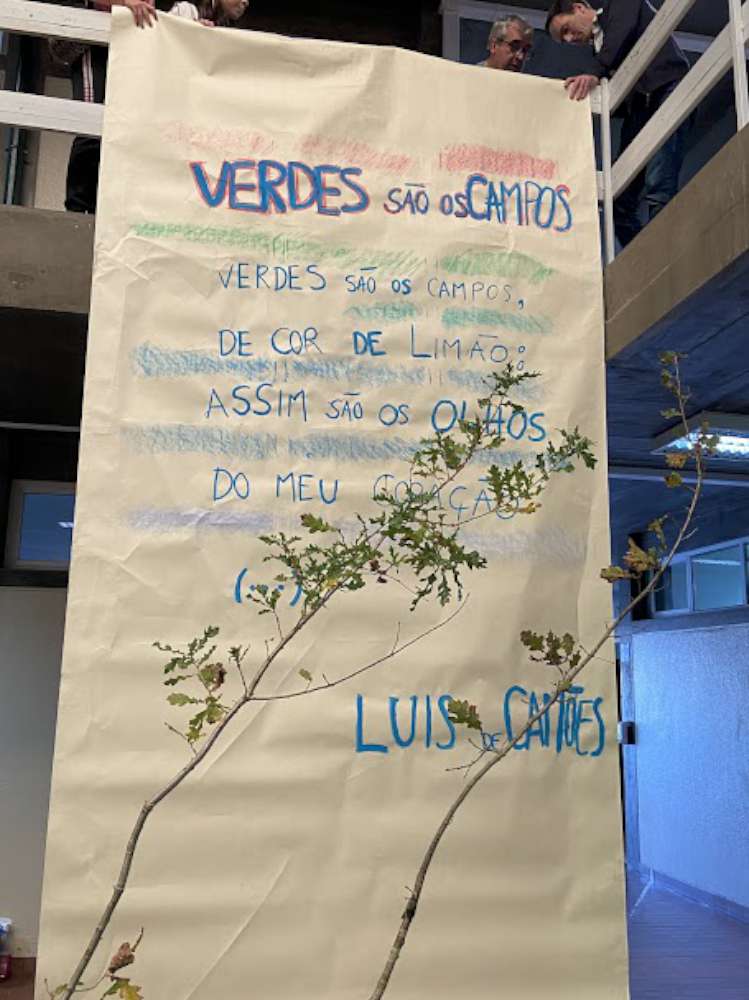 VERDES SÃO OS CAMPOS
VERDES SÃO OS CAMPOS,
DE COR DE LIMÃO:
ASSIM SÃO OS OLHOS
DO MEU CORAÇÃO
(...)
LUIS DE CAMÕES